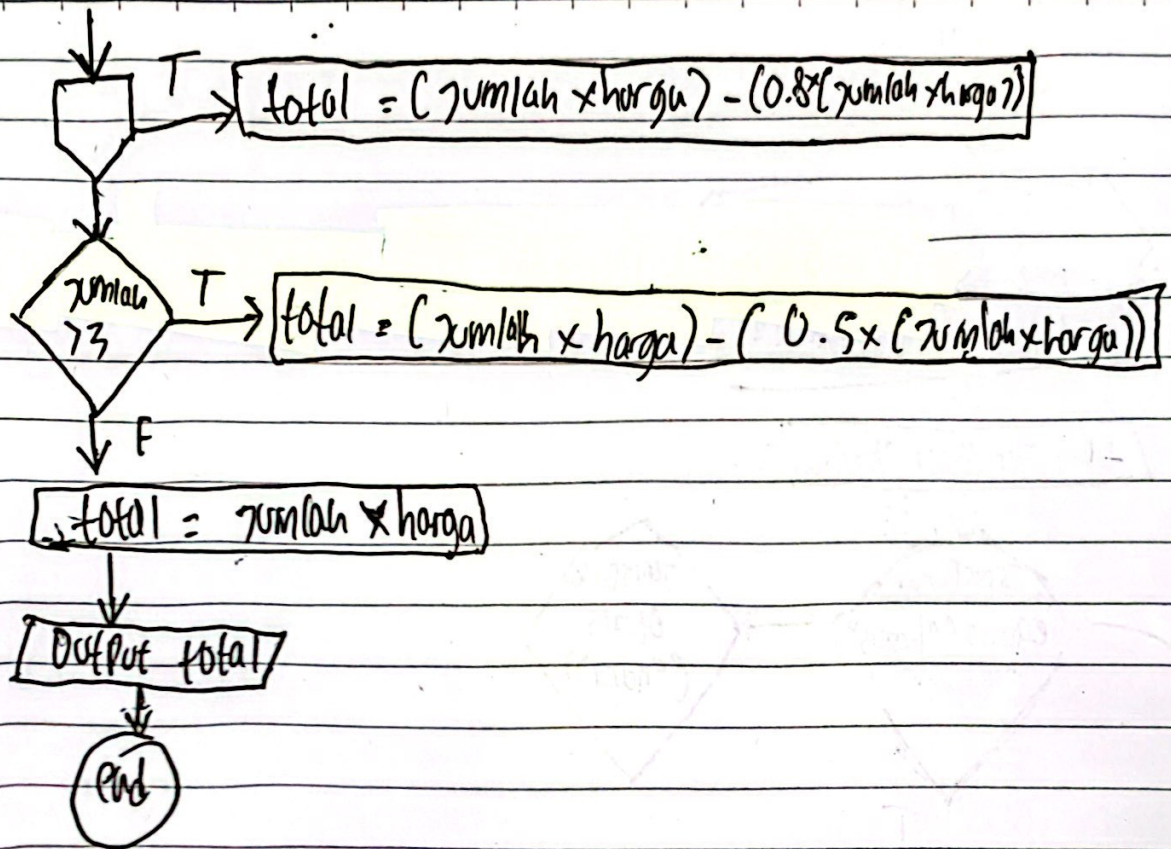 T
total = (jumlah x harga) - (0.8x(jumlah x harga))
jumlah
>3
T
total = (jumlah x harga) - (0.5x(jumlah x harga))
F
total = jumlah x harga
Output total
end